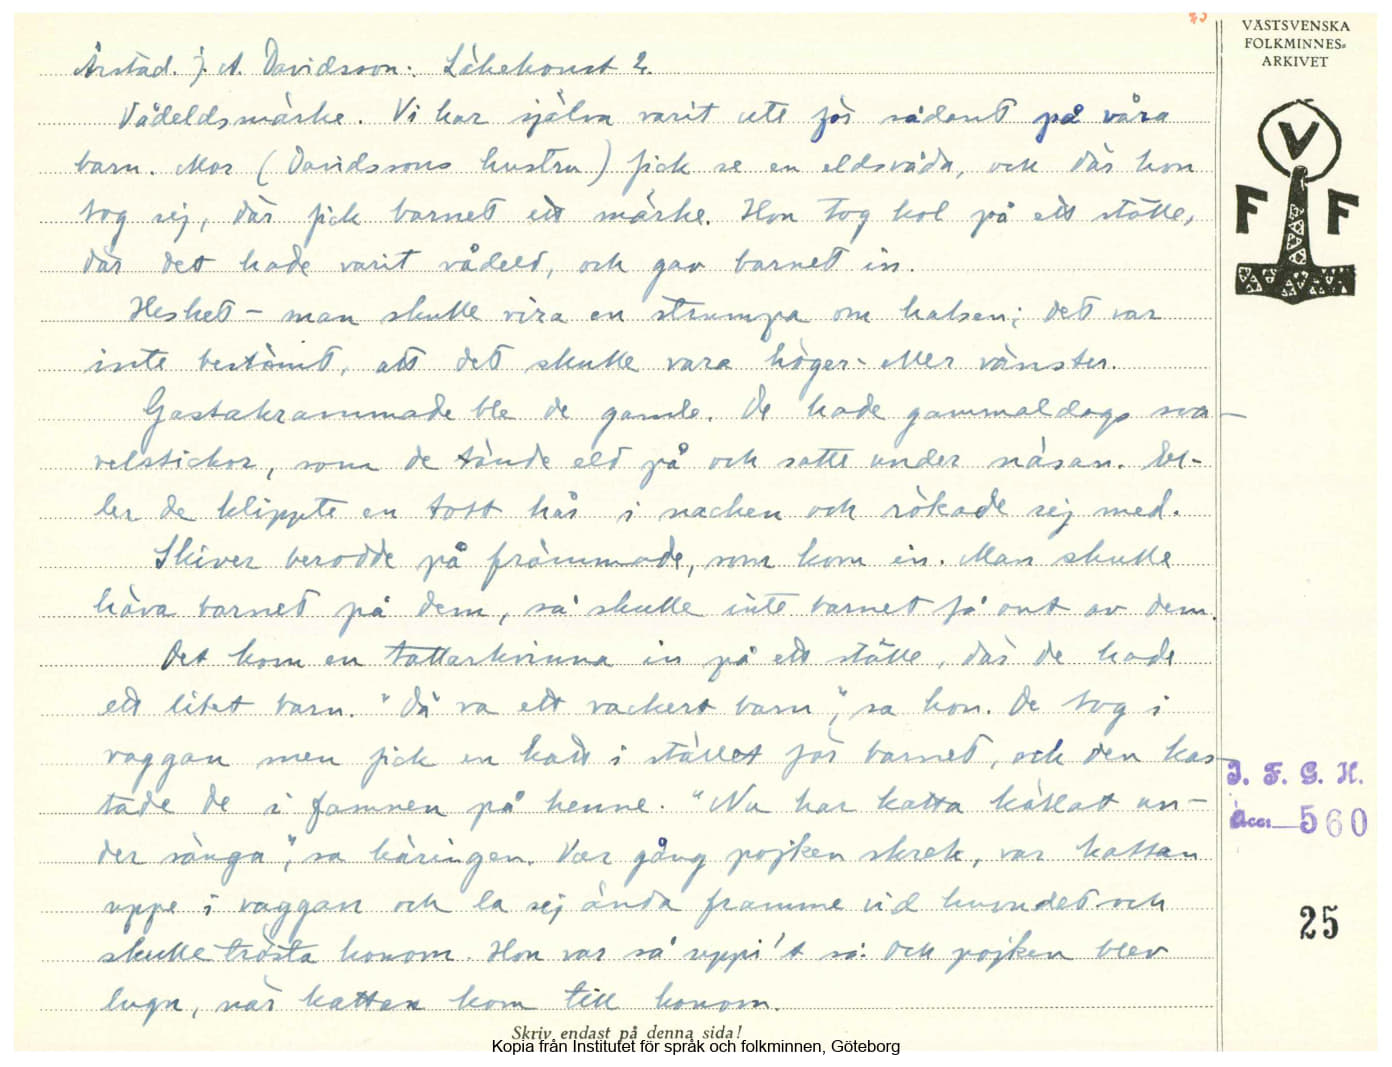 VÄSTSVENSKA
FOLKMINNES-
ARKIVET
V
F F
Årstad. J. A. Davidsson: Läkekonst 2.
Vådeldsmärke. Vi har själva varit ute för sådant på våra
barn. Mor (Davidssons hustru) fick se en eldsvåda, och där hon
tog sej, där fick barnet ett märke. Hon tog kol på ett ställe,
där det hade varit vådeld, och gav barnet in.
Heshet - man skulle vira en strumpa om halsen; det var
inte bestämt, att det skulle vara höger- eller vänster.
Gastakrammade ble de gamle. De hade gammaldags sva-
velstickor, som de tände eld på och satte under näsan. El-
ler de klippte en tott hår i nacken och rökade sej med.
Skiver berodde på främmade, som kom in. Man skulle
häva barnet på dem, så skulle inte barnet få ont av dem.
Det kom en tattarkvinna in på ett ställe, där de hade
ett litet barn. "Dä va ett vackert barn", sa hon. De tog i
vaggan men fick en katt i stället för barnet, och den kas-
tade de i famnen på henne. "Nu har katta kättat un-
der sänga", sa käringen. Var gång pojken skrek, var kattan
uppe i vaggan och la sej ända framme vid huvudet och
skulle trösta honom. Hon var så uppi't så. Och pojken blev
lugn, när kattan kom till honom.
Skriv endast på denna sida!
Kopia från Institutet för språk och folkminnen, Göteborg
I. F. G. H.
Acc. 560
25